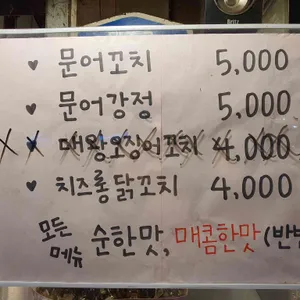 ♥ 문어꼬치 5,000
♥ 문어강정 5,000
대왕오징어꼬치 4,000
♥ 치즈롱닭꼬치 4,000
모든 메뉴 순한맛, 매콤한맛 (반반